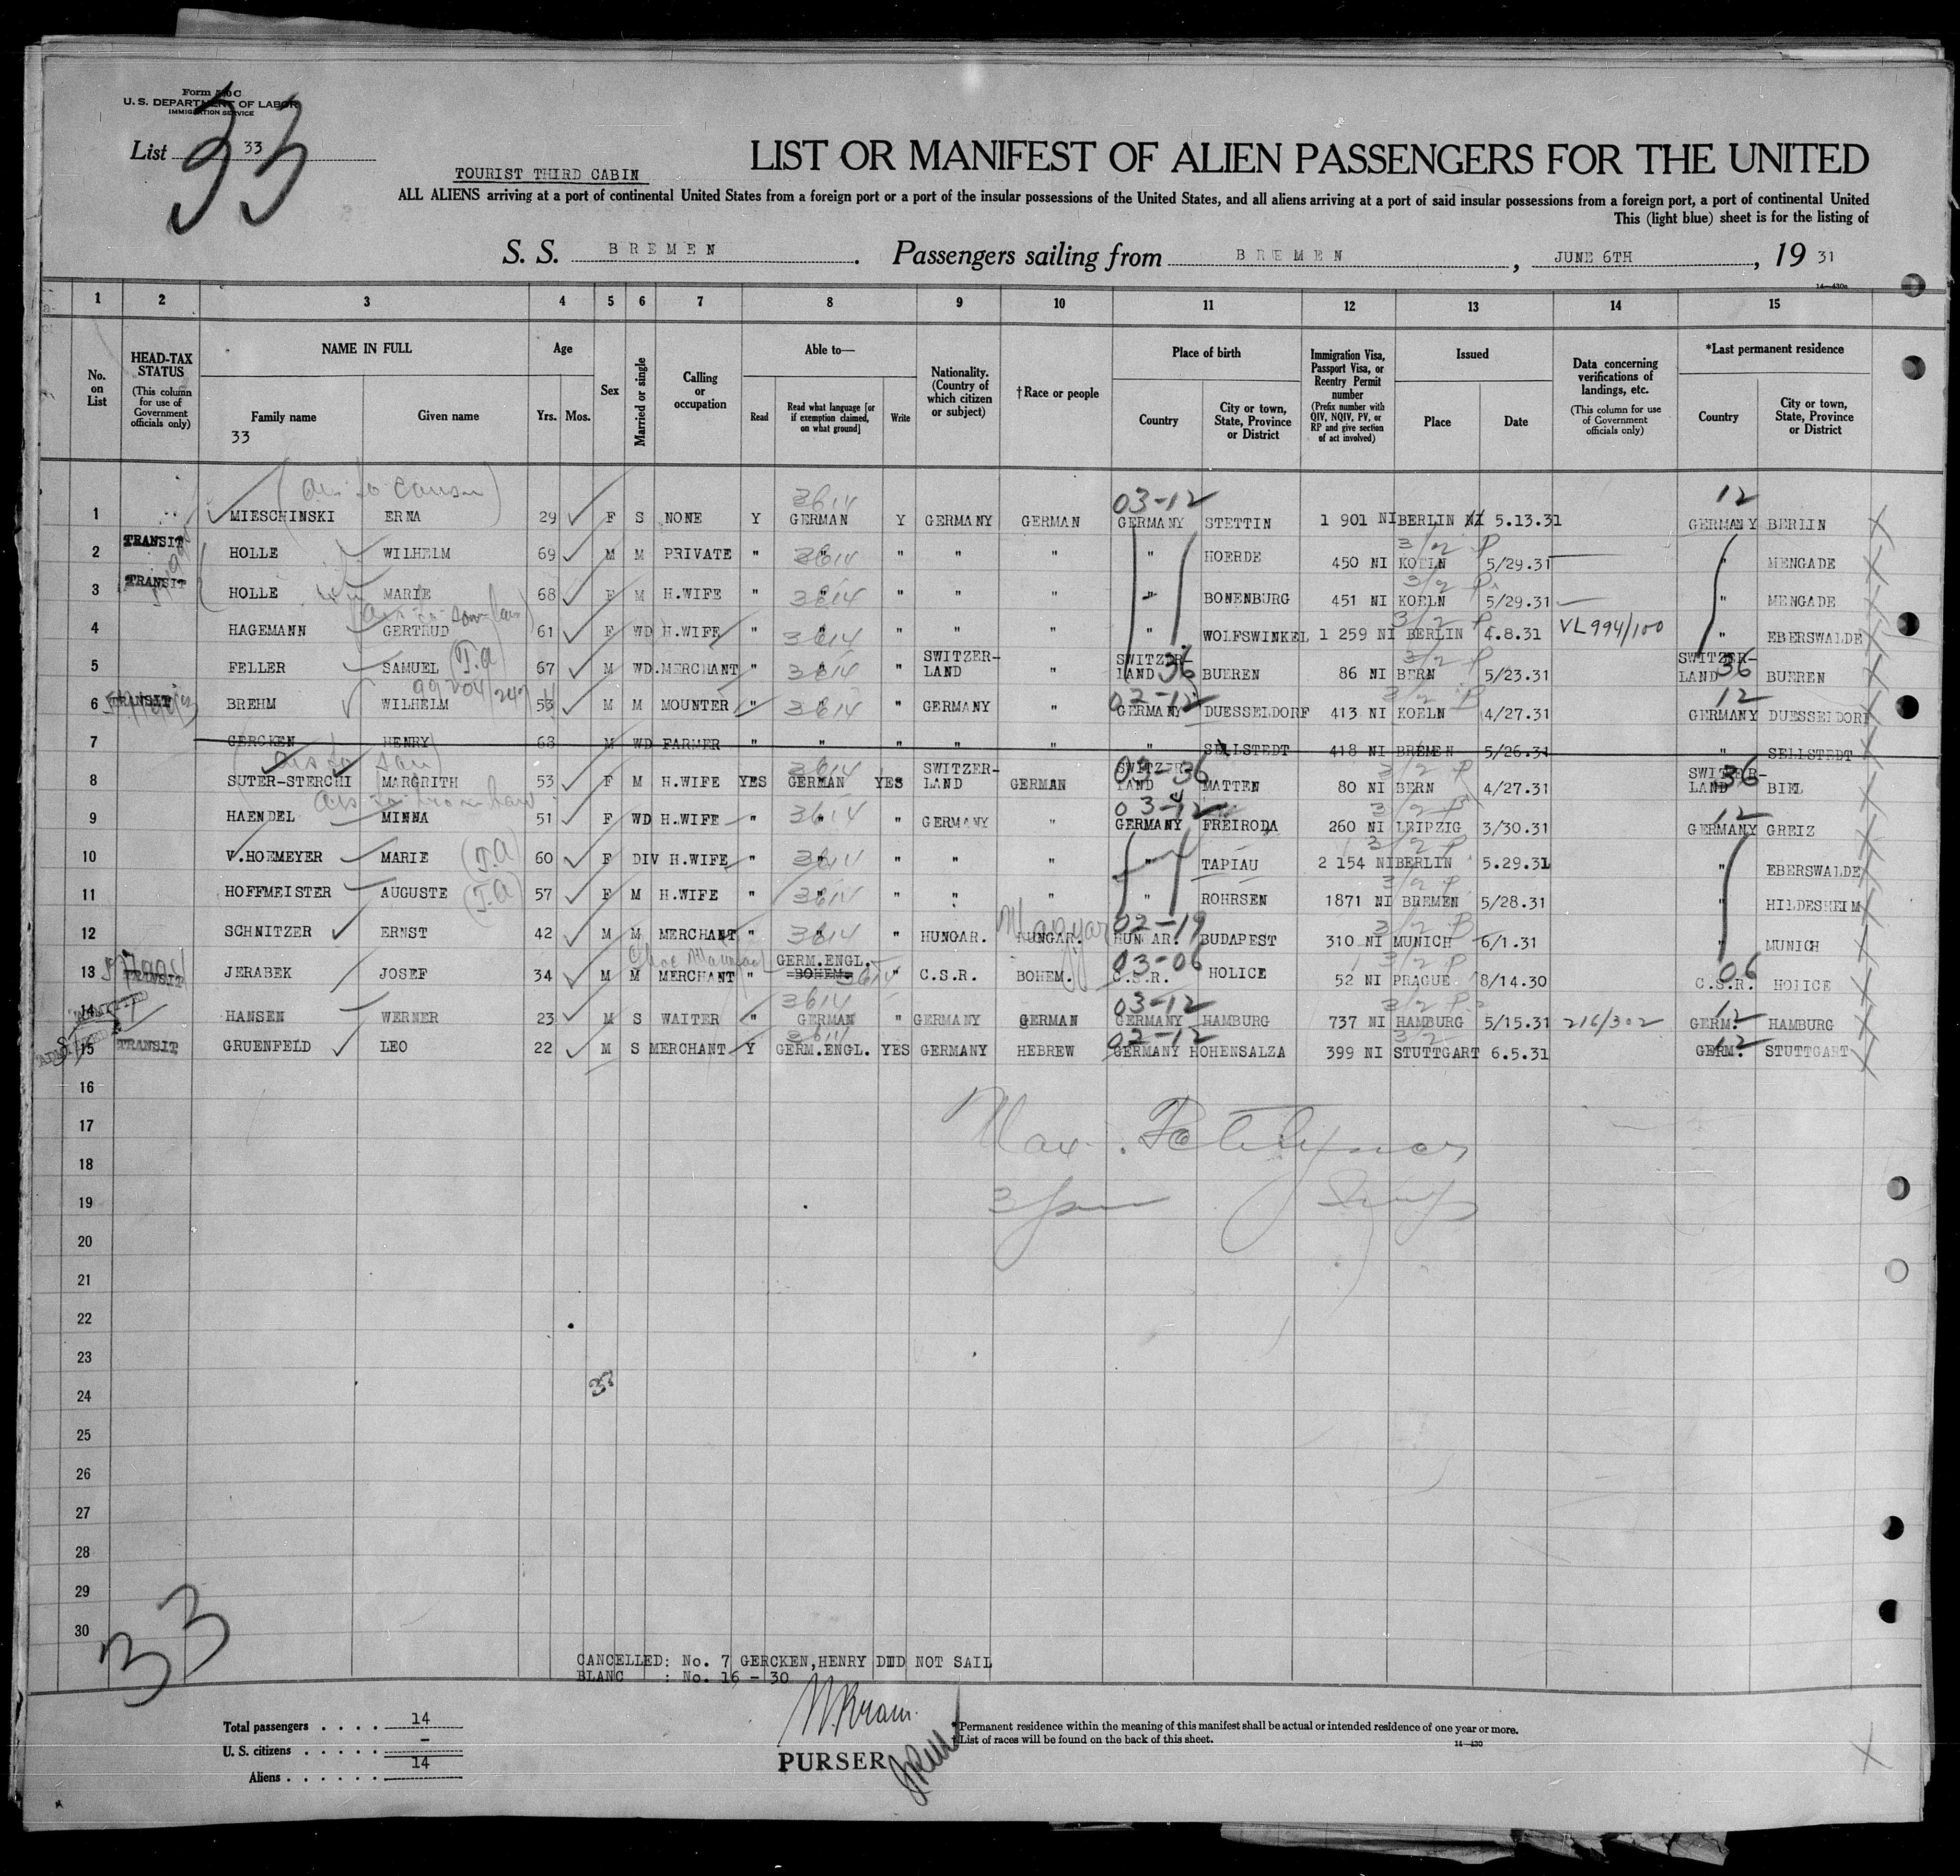 Form 500 C
U. S. DEPARTMENT OF LABOR
IMMIGRATION SERVICE
List 33
33
TOURIST THIRD CABIN
LIST OR MANIFEST OF ALIEN PASSENGERS FOR THE UNITED
ALL ALIENS arriving at a port of continental United States from a foreign port or a port of the insular possessions of the United States, and all aliens arriving at a port of said insular possessions from a foreign port, a port of continental United
This (light blue) sheet is for the listing of
S. S. BREMEN. Passengers sailing from BREMEN, JUNE 6TH, 19 31
14—430a
1 2 3 4 5 6 7 8 9 10 11 12 13 14 15
No. on List
HEAD-TAX STATUS (This column for use of Government officials only)
NAME IN FULL
Family name Given name
33
Age
Yrs. Mos.
Sex
Married or single
Calling or occupation
Able to—
Read Read what language [or if exemption claimed, on what ground] Write
Nationality. (Country of which citizen or subject)
†Race or people
Place of birth
Country City or town, State, Province or District
Immigration Visa, Passport Visa, or Reentry Permit number (Prefix number with QIV, NQIV, PV, or RP and give section of act involved)
Issued
Place Date
Data concerning verifications of landings, etc. (This column for use of Government officials only)
*Last permanent residence
Country City or town, State, Province or District
3614 03-12 12
1 MIESCHINSKI ERNA 29 F S NONE Y GERMAN Y GERMANY GERMAN GERMANY STETTIN 1 901 NI BERLIN 5.13.31 GERMANY BERLIN
2 TRANSIT HOLLE WILHELM 69 M M PRIVATE " " 3614 " " " " HOERDE 450 NI KOELN 5/29.31 " MENGADE
3 TRANSIT HOLLE MARIE 68 F M H.WIFE " " 3614 " " " " BONENBURG 451 NI KOELN 5/29.31 " MENGADE
4 HAGEMANN GERTRUD 61 F WD H.WIFE " " 3614 " " " " WOLFSWINKEL 1 259 NI BERLIN 4.8.31 VL994/100 " EBERSWALDE
5 FELLER SAMUEL (T.A) 67 M WD. MERCHANT " " 3614 " SWITZER-LAND " SWITZER-LAND 36 BUEREN 86 NI BERN 5/23.31 SWITZER-LAND 36 BUEREN
6 TRANSIT BREHM WILHELM 53 M M MOUNTER " " 3614 " GERMANY " 02-12 GERMANY DUESSELDORF 413 NI KOELN 4/27.31 12 GERMANY DUESSELDORF
7 GERCKEN HENRY 68 M WD FARMER " " " " " " SELLSTEDT 418 NI BREMEN 5/26.31 " SELLSTEDT
8 SUTER-STERCHI MARGRITH 53 F M H.WIFE YES 3614 GERMAN YES SWITZER-LAND GERMAN 03-36 SWITZER-LAND MATTEN 80 NI BERN 4/27.31 SWITZER-LAND 36 BIEL
9 HAENDEL MINNA 51 F WD H.WIFE " " 3614 " GERMANY " 03-12 GERMANY FREIRODA 260 NI LEIPZIG 3/30.31 12 GERMANY GREIZ
10 V.HOEMEYER MARIE (T.A) 60 F DIV H.WIFE " " 3614 " " " " TAPIAU 2 154 NI BERLIN 5.29.31 " EBERSWALDE
11 HOFFMEISTER AUGUSTE (T.A) 57 F M H.WIFE " " 3614 " " " " ROHRSEN 1871 NI BREMEN 5/28.31 " HILDESHEIM
12 SCHNITZER ERNST 42 M M MERCHANT " " 3614 " HUNGAR. HUNGAR. Magyar 02-19 HUNGAR. BUDAPEST 310 NI MUNICH 6/1.31 " MUNICH
13 TRANSIT JERABEK JOSEF 34 M M MERCHANT " GERM.ENGL. BOHEM. 3614 " C.S.R. BOHEM. 03-06 C.S.R. HOLICE 52 NI PRAGUE 8/14.30 06 C.S.R. HOLICE
14 HANSEN WERNER 23 M S WAITER " 3614 GERMAN " GERMANY GERMAN 03-12 GERMANY HAMBURG 737 NI HAMBURG 5/15.31 216/302 12 GERM. HAMBURG
15 TRANSIT GRUENFELD LEO 22 M S MERCHANT Y 3614 GERM.ENGL. YES GERMANY HEBREW 02-12 GERMANY HOHENSALZA 399 NI STUTTGART 6.5.31 12 GERM. STUTTGART
16
17
18
19
20
21
22
23
24
25
26
27
28
29
30
33
CANCELLED: No. 7 GERCKEN,HENRY DID NOT SAIL
BLANC : No. 16 - 30
Total passengers . . . . 14
U. S. citizens . . . . . -
Aliens . . . . . . 14
PURSER
*Permanent residence within the meaning of this manifest shall be actual or intended residence of one year or more.
†List of races will be found on the back of this sheet.
14—430